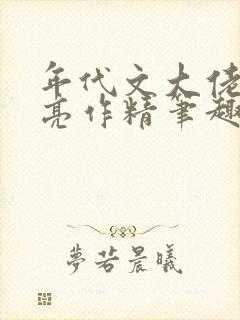 年代文大佬
亮作精笔趣
梦若晨曦